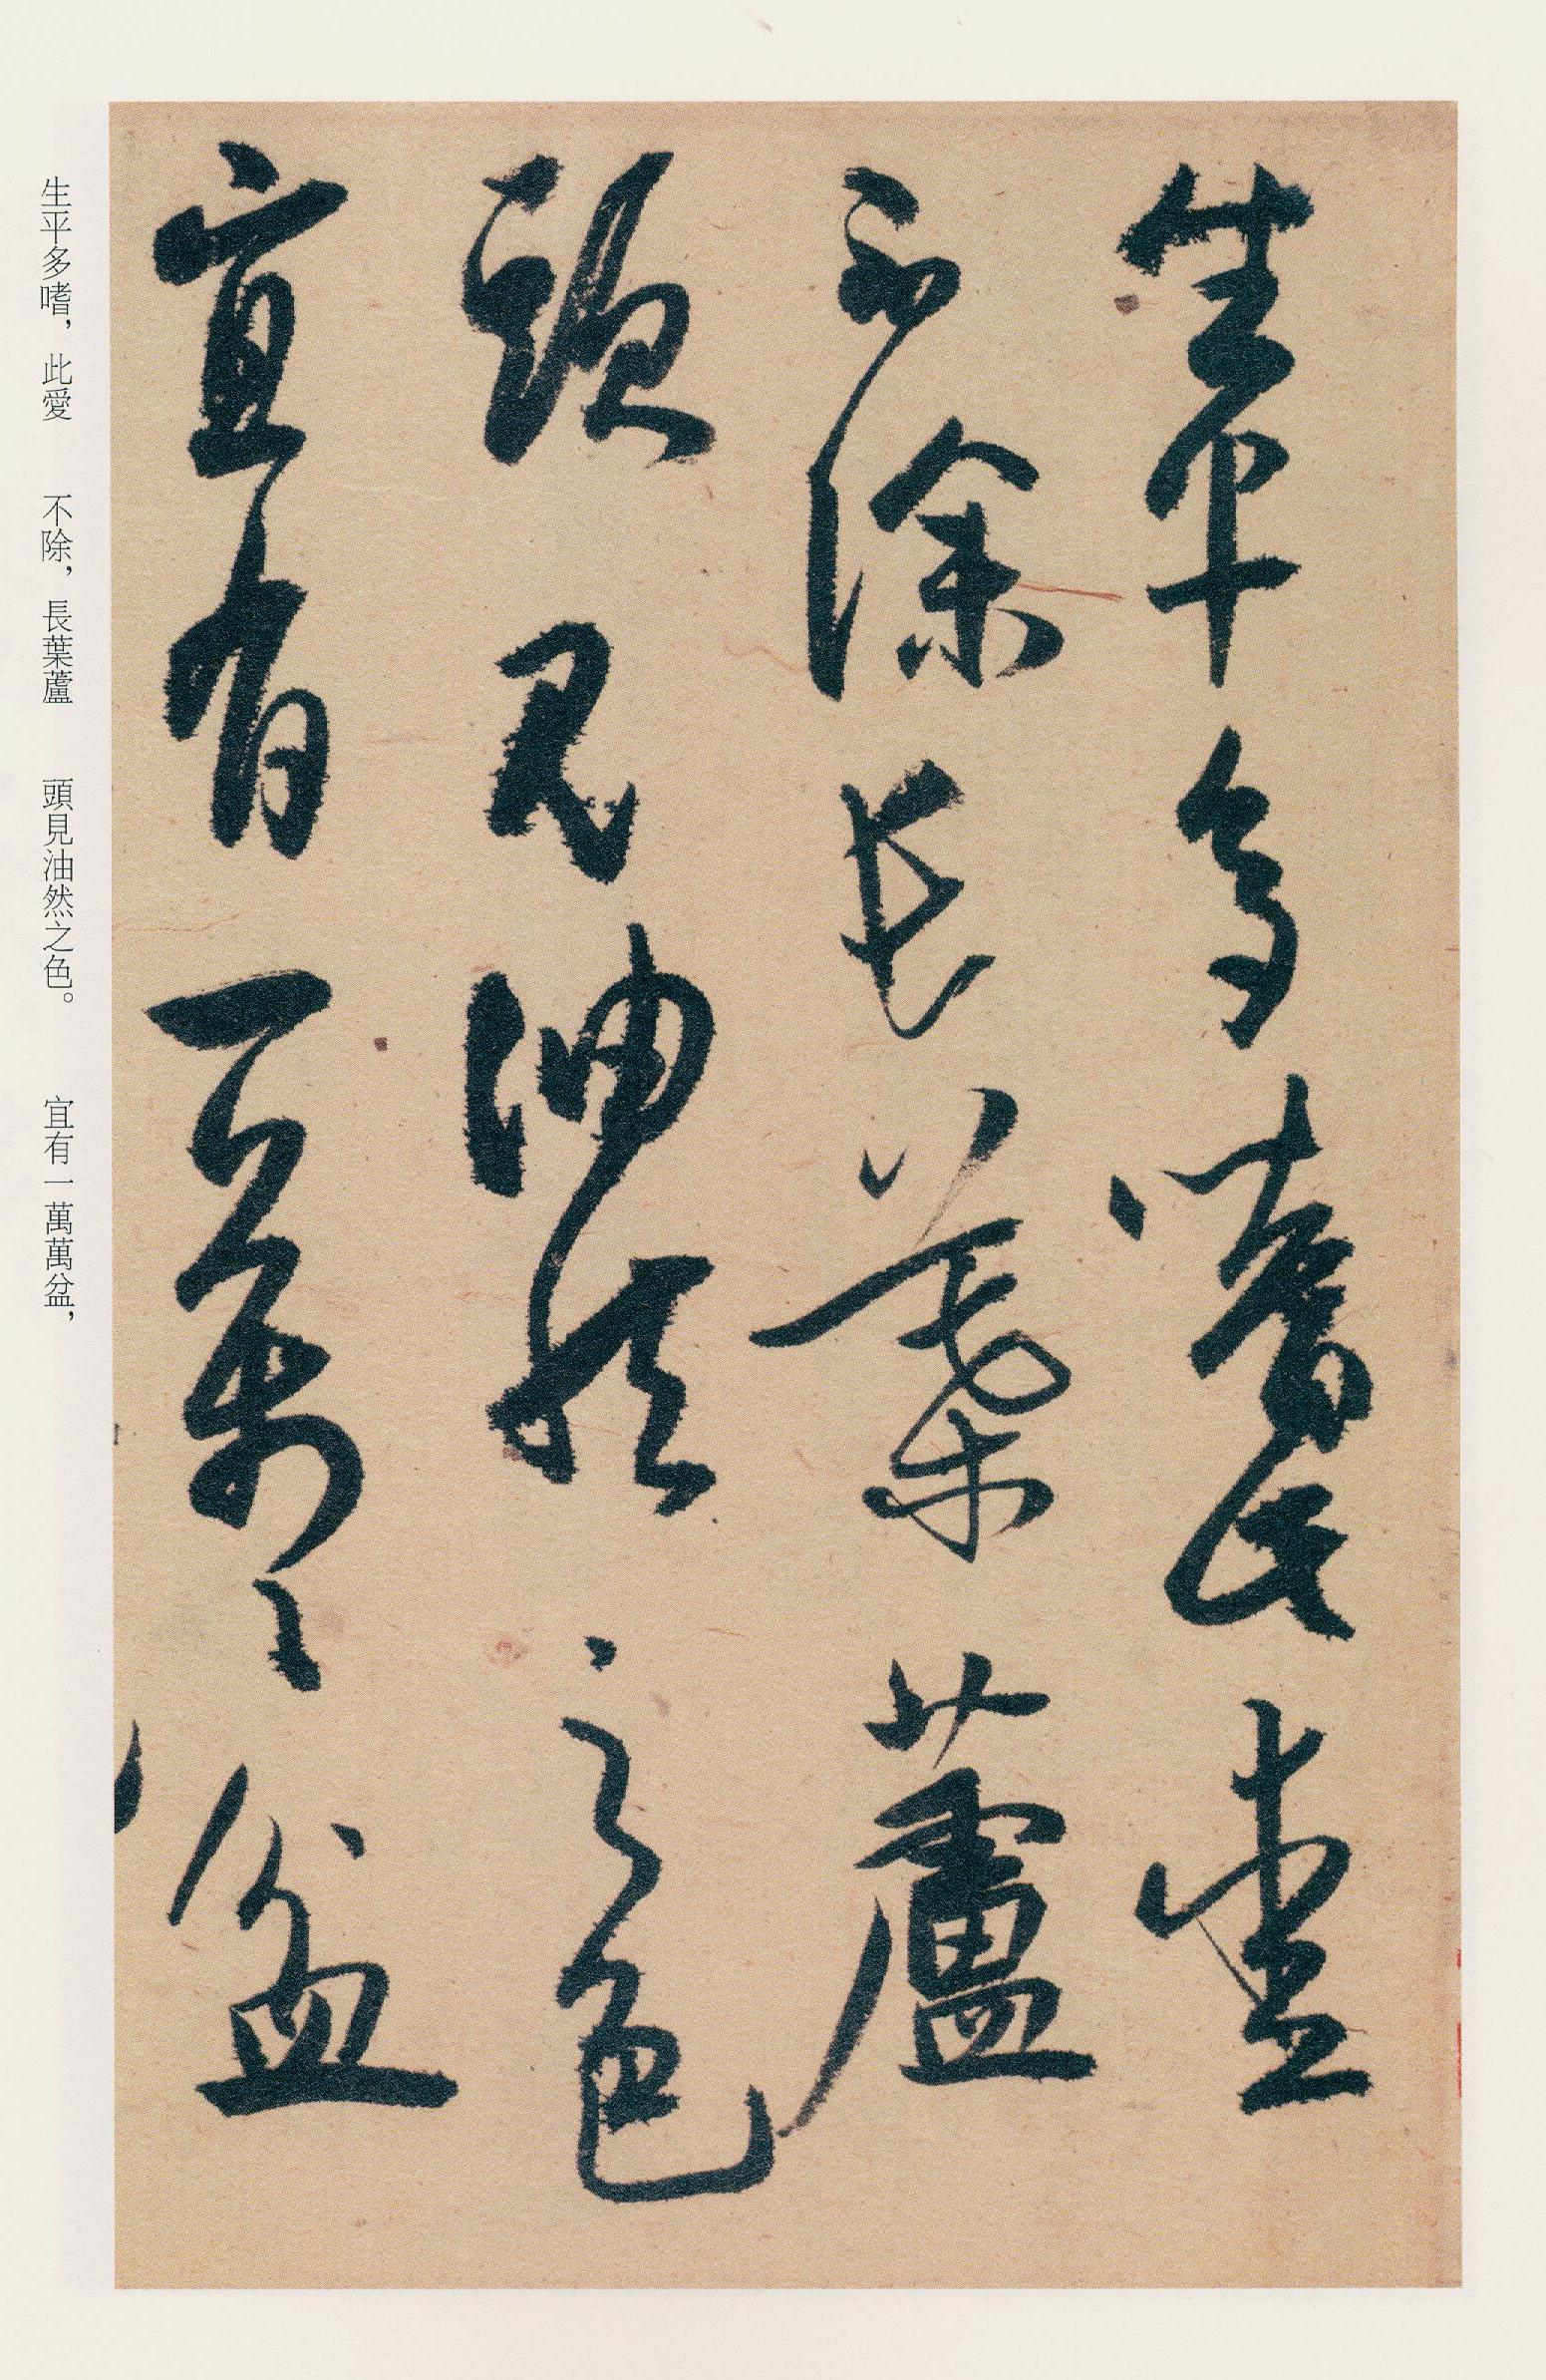 生平多嗜此愛
不除長葉蘆
頭見油然之色
宜有一萬々盆
生平多嗜，此愛　不除，長葉蘆　頭見油然之色。　宜有一萬萬盆，